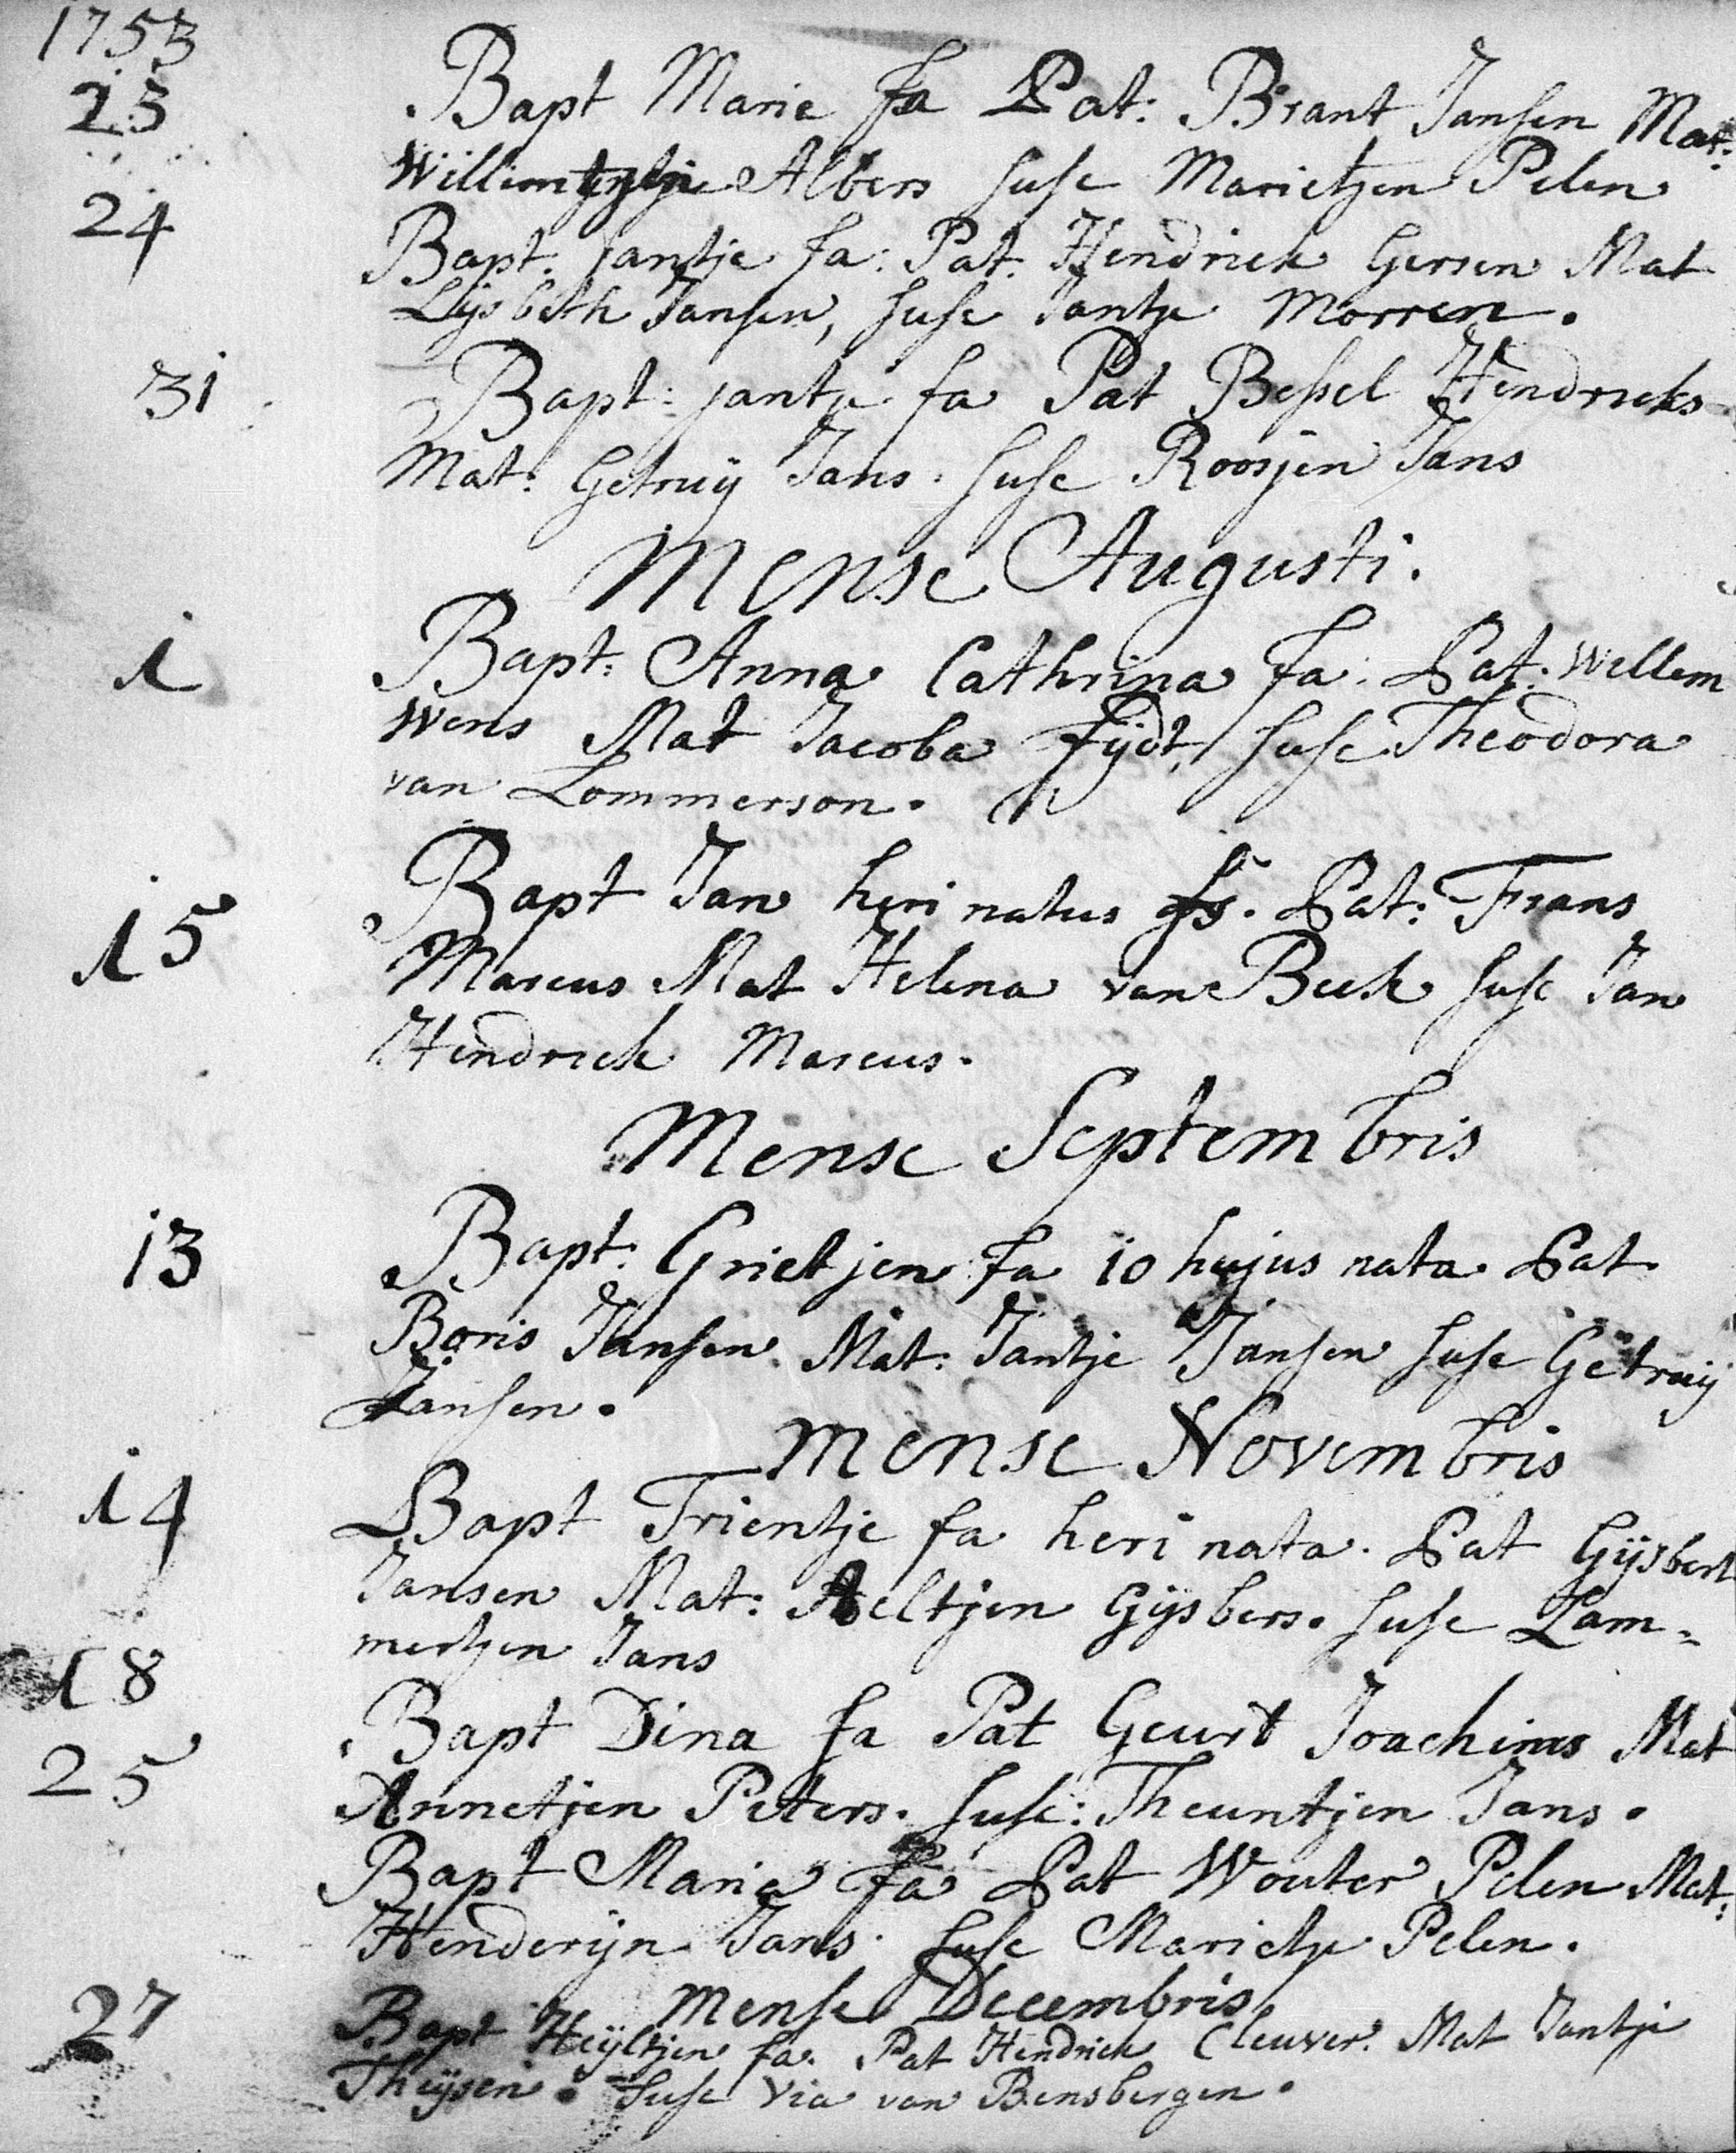 1753
23 Bapt Marie fa Pat: Brant Jansen Mat:
Willemtje Albers suse Marietjen Pelen
24 Bapt: Jantje fa: Pat: Hendrick Gersen Mat
Lijsbeth Jansen, suse Jantje Morren.
31 Bapt: jantje fa Pat Bessel Hendricks
Mat: Getruij Jans. suse Roosjen Jans
Mense Augusti.
1 Bapt: Anna Cathrina fa: Pat: Willem
Wens Mat Jacoba fijdt, suse Theodora
van Lommerson.
15 Bapt Jan heri natus fs. Pat: Frans
Marcus Mat Helena van Beek suse Jan
Hendrick Marcus.
Mense Septembris
13 Bapt: Grietjen fa 10 hujus nata Pat
Boris Jansen. Mat: Jantje Jansen suse Getruij
Jansen.
Mense Novembris
14 Bapt Trientje fa heri nata. Pat Gijsbert
Jansen Mat: Aeltjen Gijsbers. suse Lam=
mertjen Jans
18 Bapt Dina fa Pat Geurt Joachims Mat
Annetjen Peters. suse: Theuntjen Jans.
25 Bapt Maria fa Pat Wouter Pelen Mat:
Henderijn Jans. suse Marietje Pelen.
Mense Decembris
27 Bapt Heijltjen fa. Pat Hendrick Cleuver. Mat Jantje
Theijsen. suse Via van Bensbergen.